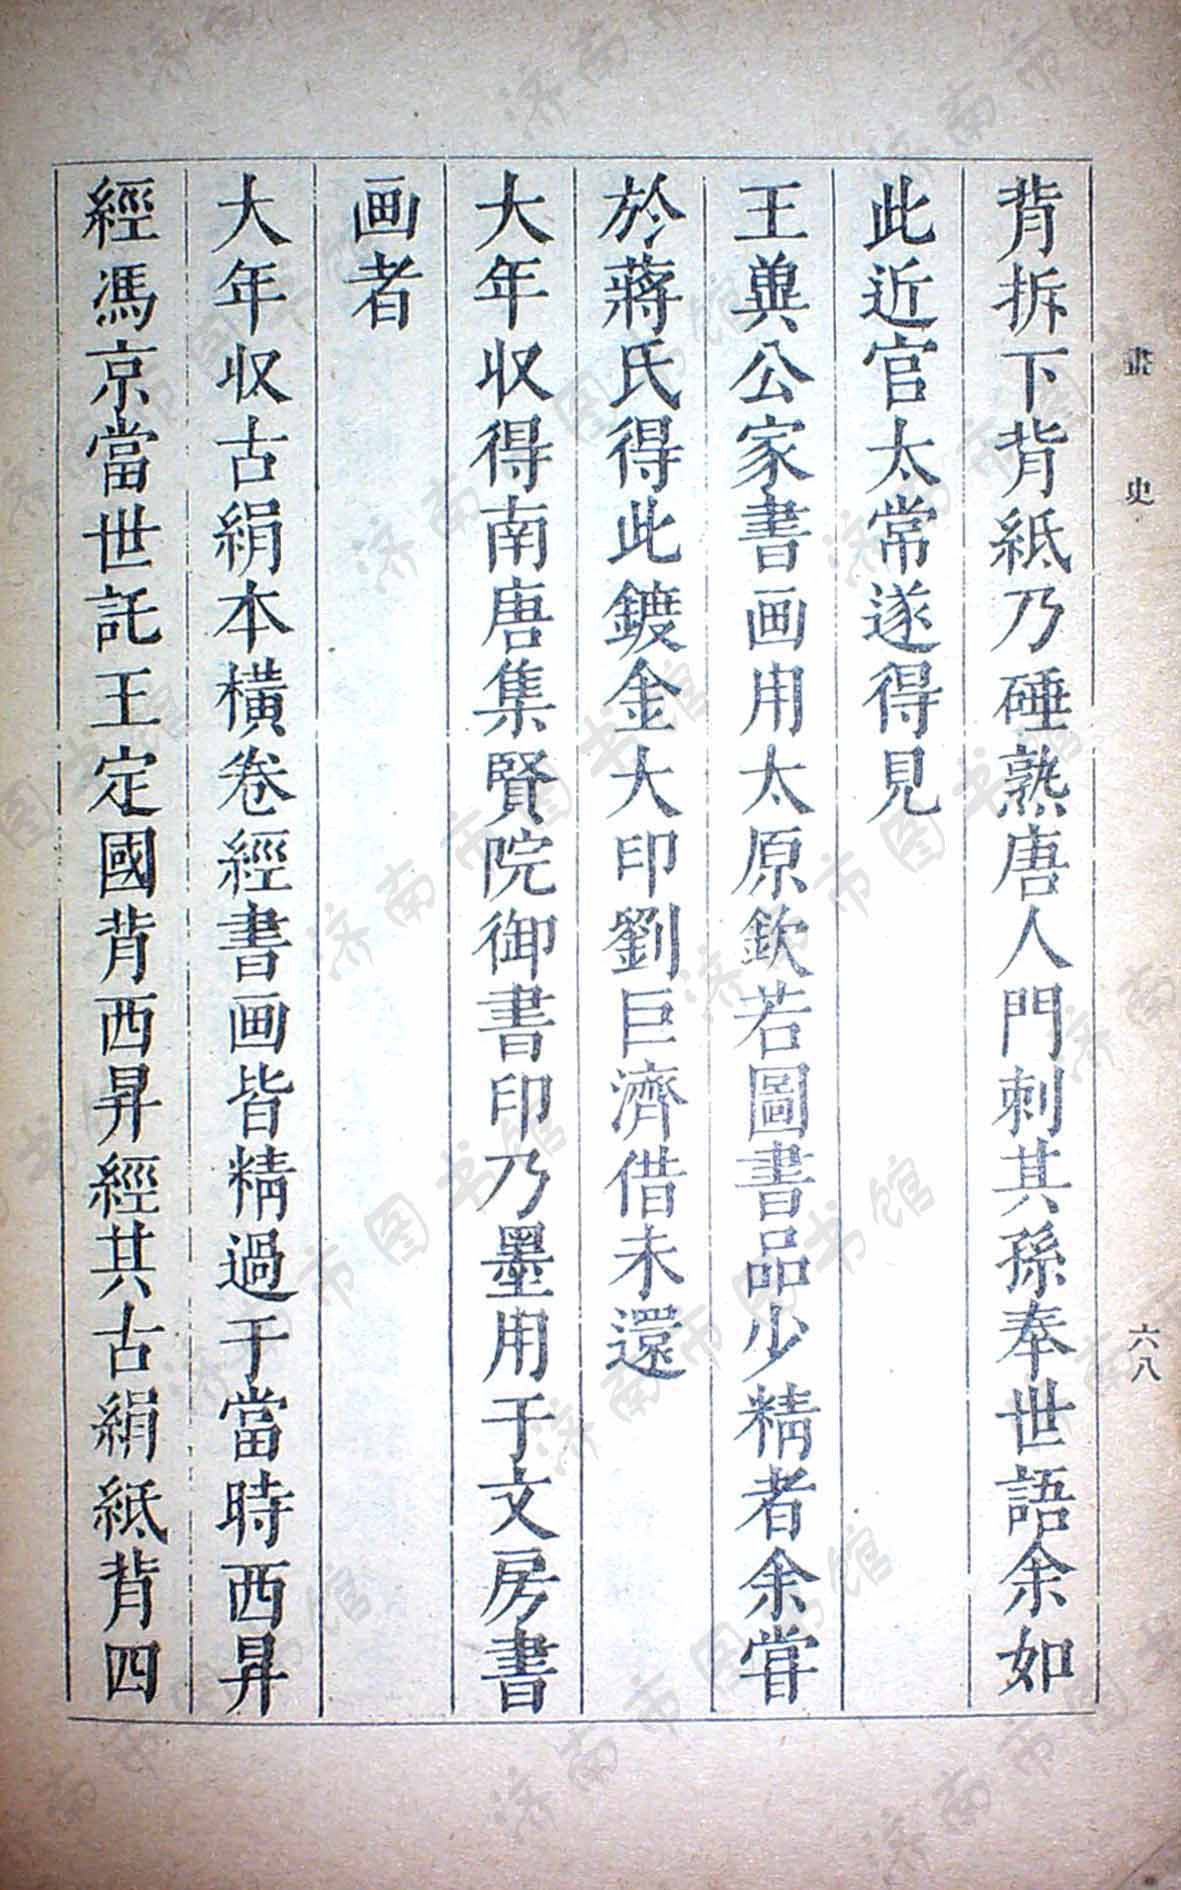 畫史
六八
背拆下背紙乃硾熟唐人門刺其孫奉世語余如
此近官太常遂得見
王冀公家書画用太原欽若圖書品少精者余甞
於蔣氏得此鍍金大印劉巨濟借未還
大年収得南唐集賢院御書印乃墨用于文房書
画者
大年収古絹本橫卷經書画皆精過于當時西昇
經馮京當世託王定國背西昇經其古絹紙背四
济南市图书馆